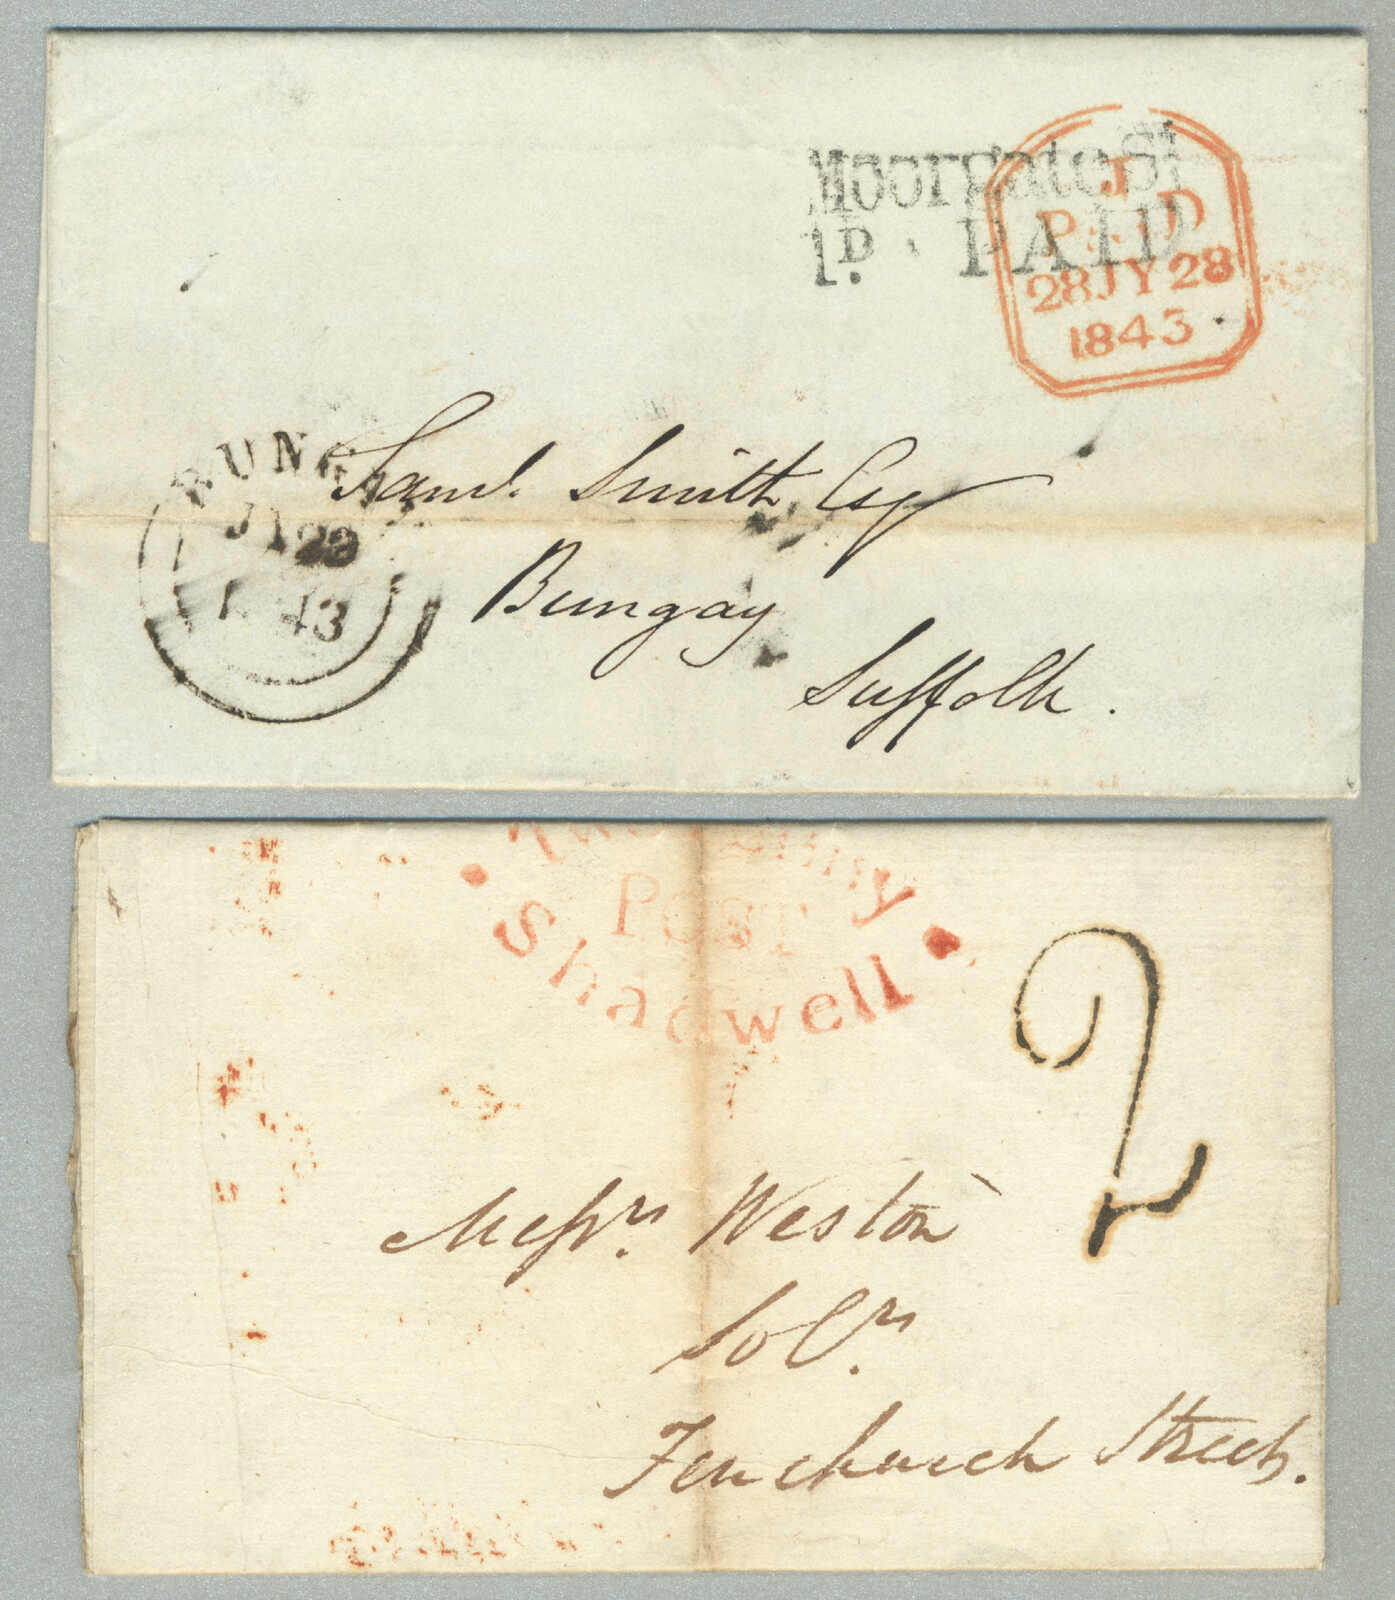 Moorgate St
1D. PAID
J
PAID
28JY28
1843
BUNGAY
JY 29
1843
Saml. Smith, Esq
Bungay
Suffolk.
Two Penny
Post
Shadwell
2
Messrs. Weston
Solrs.
Fenchurch Street.